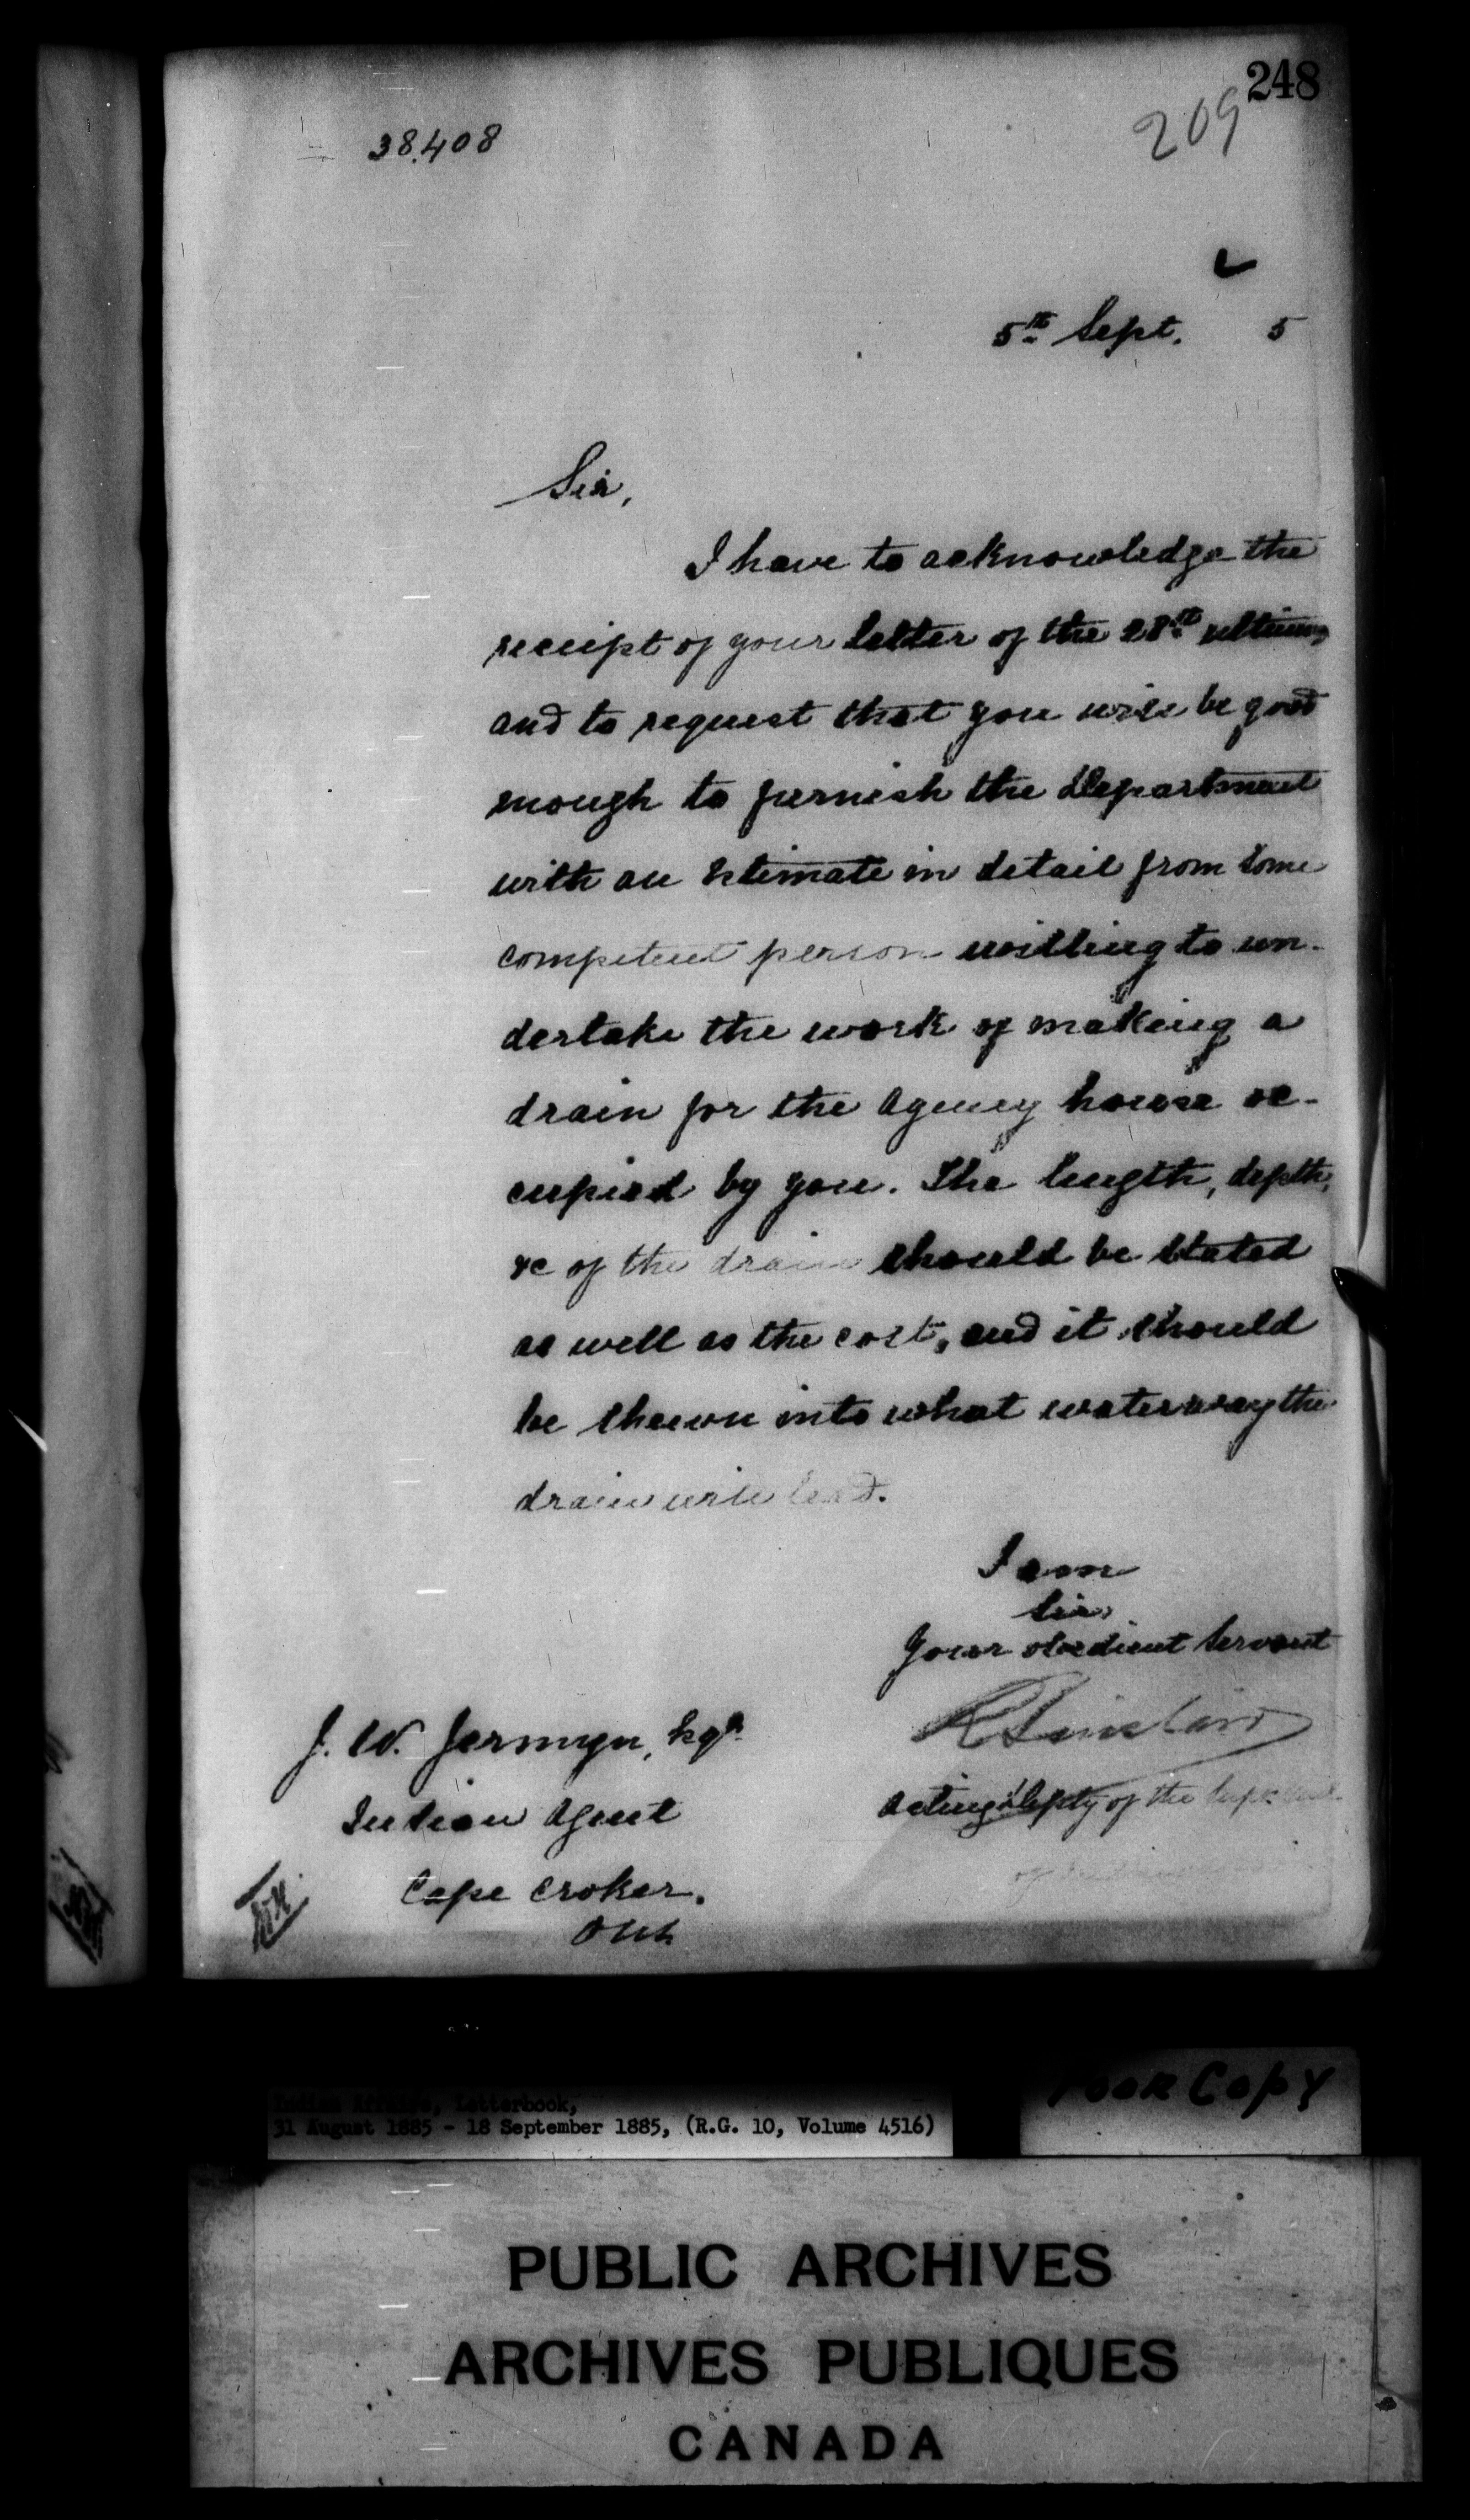 248
209
38.408
5th Sept. 5
Sir,
I have to acknowledge the
receipt of your letter of the 28th ultimo,
and to request that you will be good
enough to furnish the Department
with an estimate in detail from some
competent person willing to un-
dertake the work of making a
drain for the Agency house oc-
cupied by you. The length, depth,
&c of the drain should be stated
as well as the cost, and it should
be shewn into what waterway the
drain will lead.
I am
Sir,
Your obedient Servant
R Sinclair
Acting Depty of the Supt.
J. W. Jermyn, Esqr.
Indian Agent
Cape Croker.
Ont.
Indian Affairs, Letterbook,
31 August 1885 - 18 September 1885, (R.G. 10, Volume 4516)
Poor Copy
PUBLIC ARCHIVES
ARCHIVES PUBLIQUES
CANADA